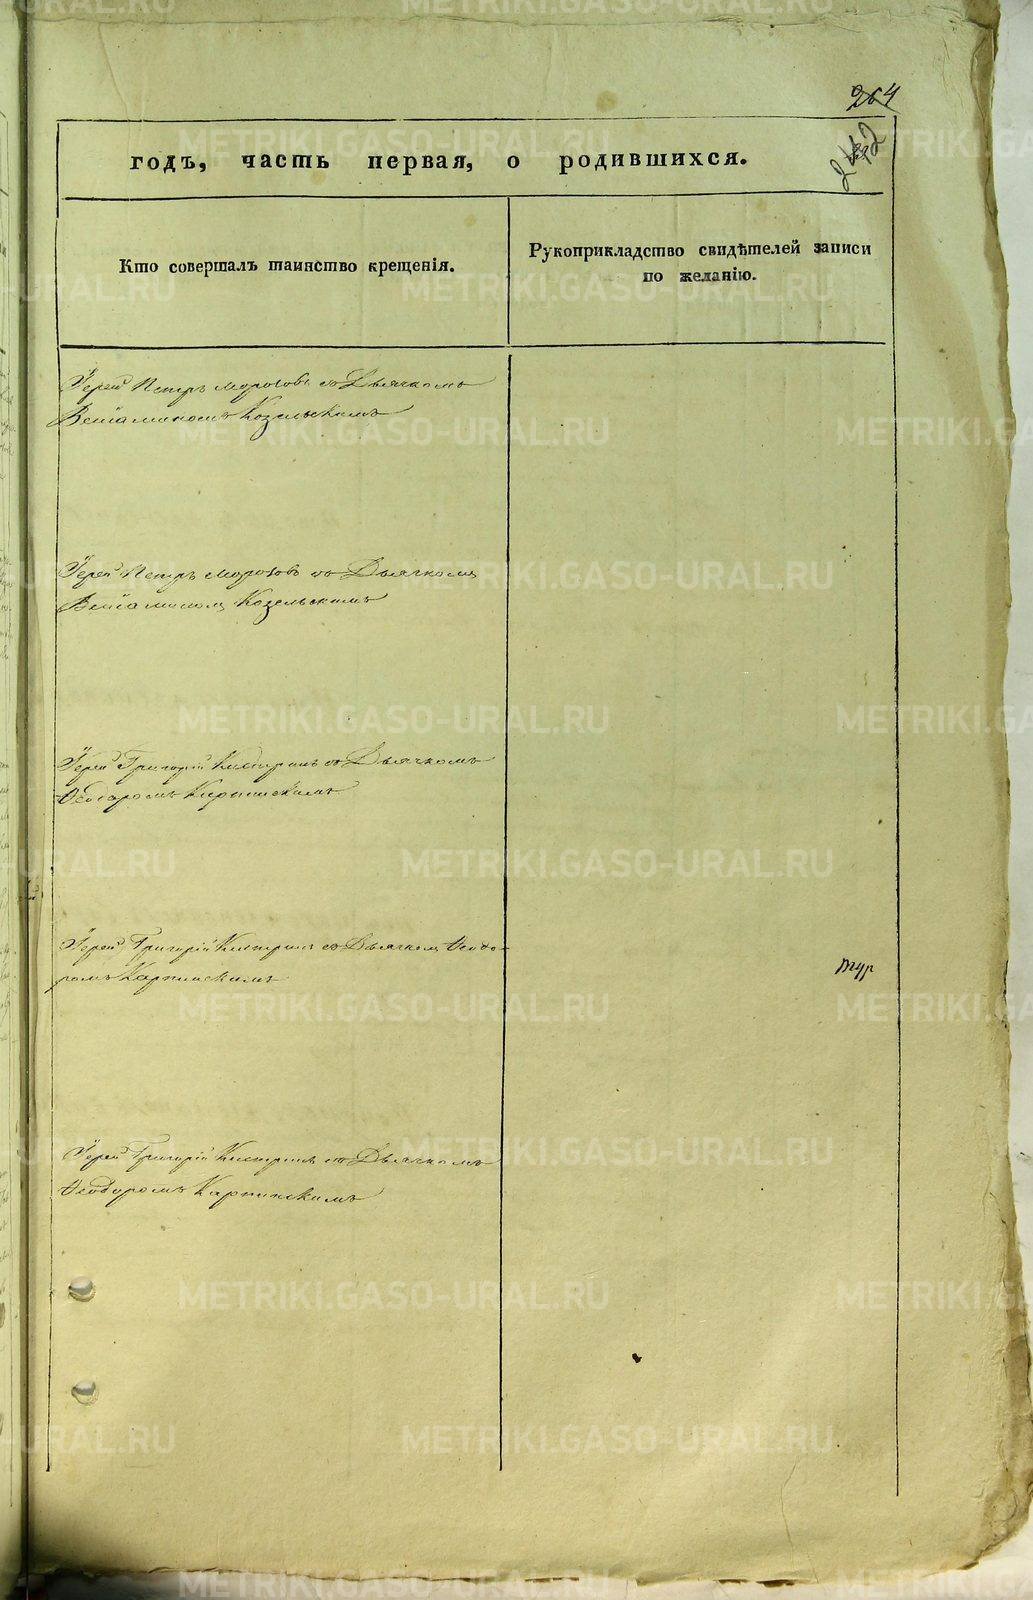 264
годъ, часть первая, о родившихся.
Кто совершалъ таинство крещенія.
Рукоприкладство свидѣтелей записи
по желанію.
Іерей Петръ Морозовъ съ Дьячкомъ
Веніаминомъ Козельскимъ
Іерей Петръ Морозовъ съ Дьячкомъ
Веніаминомъ Козельскимъ
Іерей Григорій съ Дьячкомъ
Ѳеодоромъ Карпинскимъ
Іерей Григорій съ Дьячкомъ Ѳеодо-
ромъ Карпинскимъ
Іерей Григорій съ Дьячкомъ
Ѳеодоромъ Карпинскимъ
METRIKI.GASO-URAL.RU